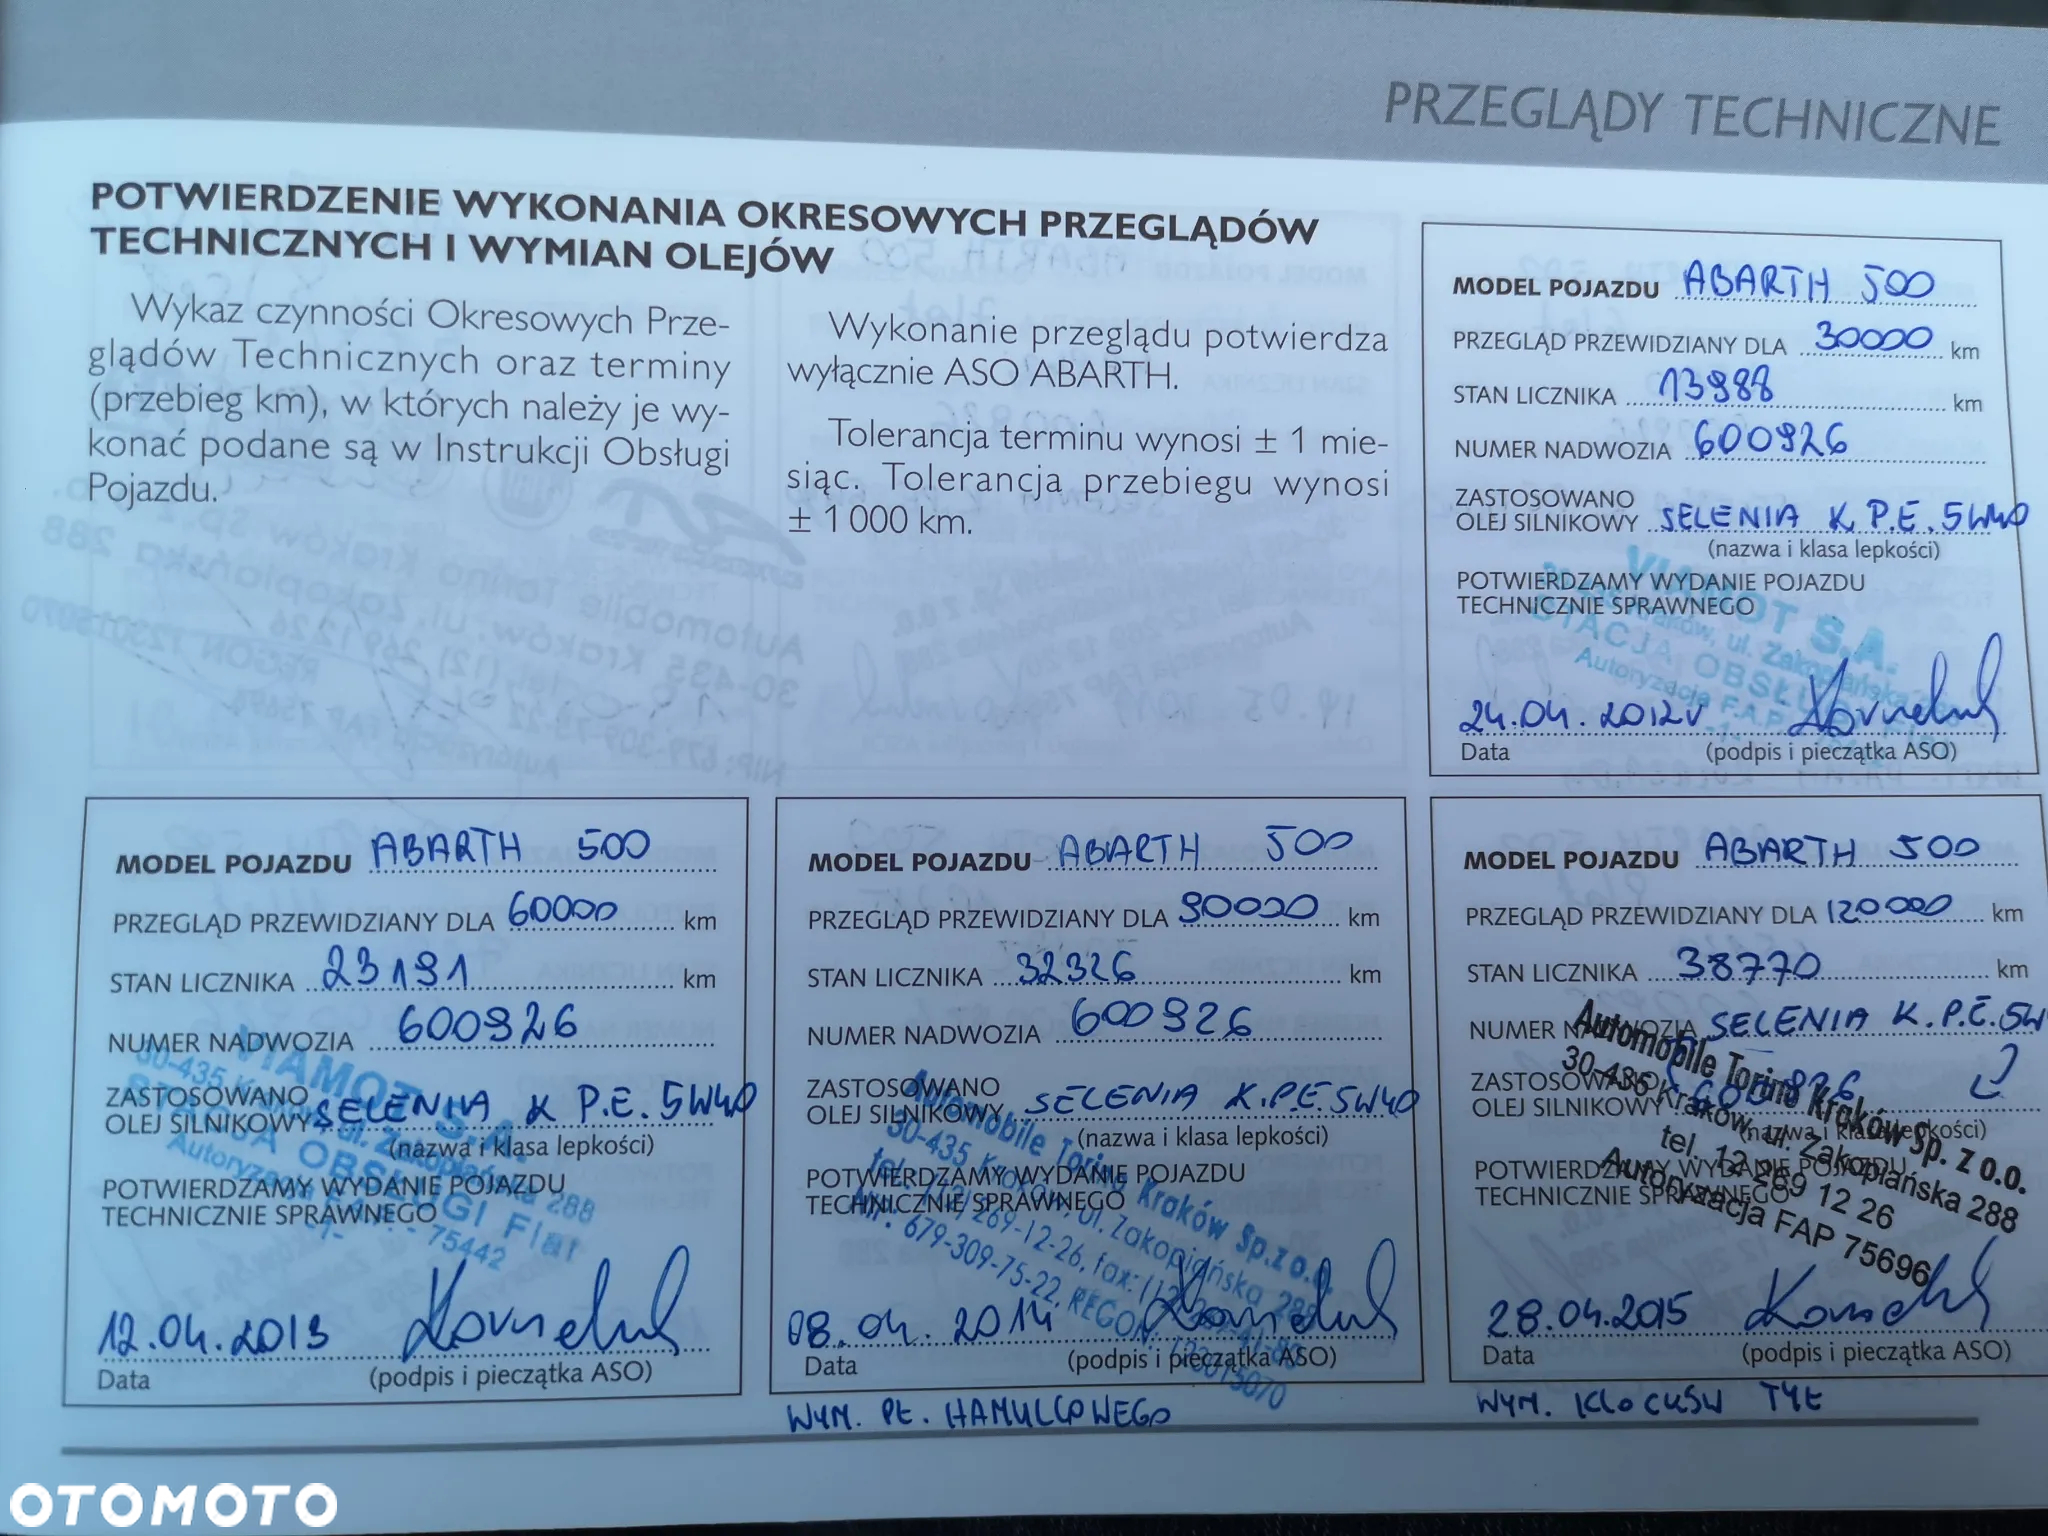 PRZEGLĄDY TECHNICZNE
POTWIERDZENIE WYKONANIA OKRESOWYCH PRZEGLĄDÓW
TECHNICZNYCH I WYMIAN OLEJÓW
Wykaz czynności Okresowych Prze-
glądów Technicznych oraz terminy
(przebieg km), w których należy je wy-
konać podane są w Instrukcji Obsługi
Pojazdu.
Wykonanie przeglądu potwierdza
wyłącznie ASO ABARTH.
Tolerancja terminu wynosi ± 1 mie-
siąc. Tolerancja przebiegu wynosi
± 1 000 km.
MODEL POJAZDU ABARTH 500
PRZEGLĄD PRZEWIDZIANY DLA 30000 km
STAN LICZNIKA 13988 km
NUMER NADWOZIA 600926
ZASTOSOWANO
OLEJ SILNIKOWY SELENIA K P.E. 5W40
(nazwa i klasa lepkości)
POTWIERDZAMY WYDANIE POJAZDU
TECHNICZNIE SPRAWNEGO
VIAMOT S.A.
Kraków, ul. Zakopiańska
STACJA OBSŁUGI Fiat
Autoryzacja F.A.P.
24.04.2012r
Data (podpis i pieczątka ASO)
MODEL POJAZDU ABARTH 500
PRZEGLĄD PRZEWIDZIANY DLA 60000 km
STAN LICZNIKA 23191 km
NUMER NADWOZIA 600926
ZASTOSOWANO
OLEJ SILNIKOWY SELENIA K P.E. 5W40
(nazwa i klasa lepkości)
POTWIERDZAMY WYDANIE POJAZDU
TECHNICZNIE SPRAWNEGO
VIAMOT S.A.
30-435 Kraków, ul. Zakopiańska 288
STACJA OBSŁUGI Fiat
Autoryzacja - 75442
12.04.2013
Data (podpis i pieczątka ASO)
MODEL POJAZDU ABARTH 500
PRZEGLĄD PRZEWIDZIANY DLA 90000 km
STAN LICZNIKA 32326 km
NUMER NADWOZIA 600926
ZASTOSOWANO
OLEJ SILNIKOWY SELENIA K.P.E. 5W40
(nazwa i klasa lepkości)
POTWIERDZAMY WYDANIE POJAZDU
TECHNICZNIE SPRAWNEGO
Automobile Torino Kraków Sp. z o.o.
30-435 Kraków, ul. Zakopiańska 288
tel. (12) 269-12-26, fax:
NIP: 679-309-75-22, REGON: 123015070
08.04.2014
Data (podpis i pieczątka ASO)
WYM. PŁ. HAMULCOWEGO
MODEL POJAZDU ABARTH 500
PRZEGLĄD PRZEWIDZIANY DLA 120000 km
STAN LICZNIKA 38770 km
NUMER NADWOZIA SELENIA K.P.E. 5W
ZASTOSOWANO
OLEJ SILNIKOWY 600926
(nazwa i klasa lepkości)
POTWIERDZAMY WYDANIE POJAZDU
TECHNICZNIE SPRAWNEGO
Automobile Torino Kraków Sp. z o.o.
30-435 Kraków, ul. Zakopiańska 288
tel. 12 269 12 26
Autoryzacja FAP 75696
28.04.2015
Data (podpis i pieczątka ASO)
WYM. KLOCKÓW TYŁ
OTOMOTO